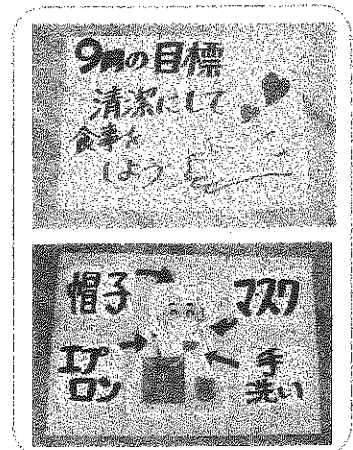 9月の目標
清潔にして
食事を
しよう
帽子
マスク
エプ
ロン
手
洗い